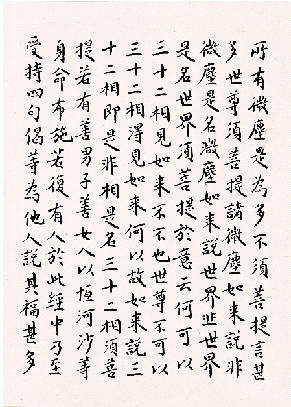 所有微塵是為多不須菩提言甚
多世尊須菩提諸微塵如來說非
微塵是名微塵如來說世界非世界
是名世界須菩提於意云何可以
三十二相見如來不不也世尊不可以
三十二相得見如來何以故如來說三
十二相即是非相是名三十二相須菩
提若有善男子善女人以恒河沙等
身命布施若復有人於此經中乃至
受持四句偈等為他人說其福甚多